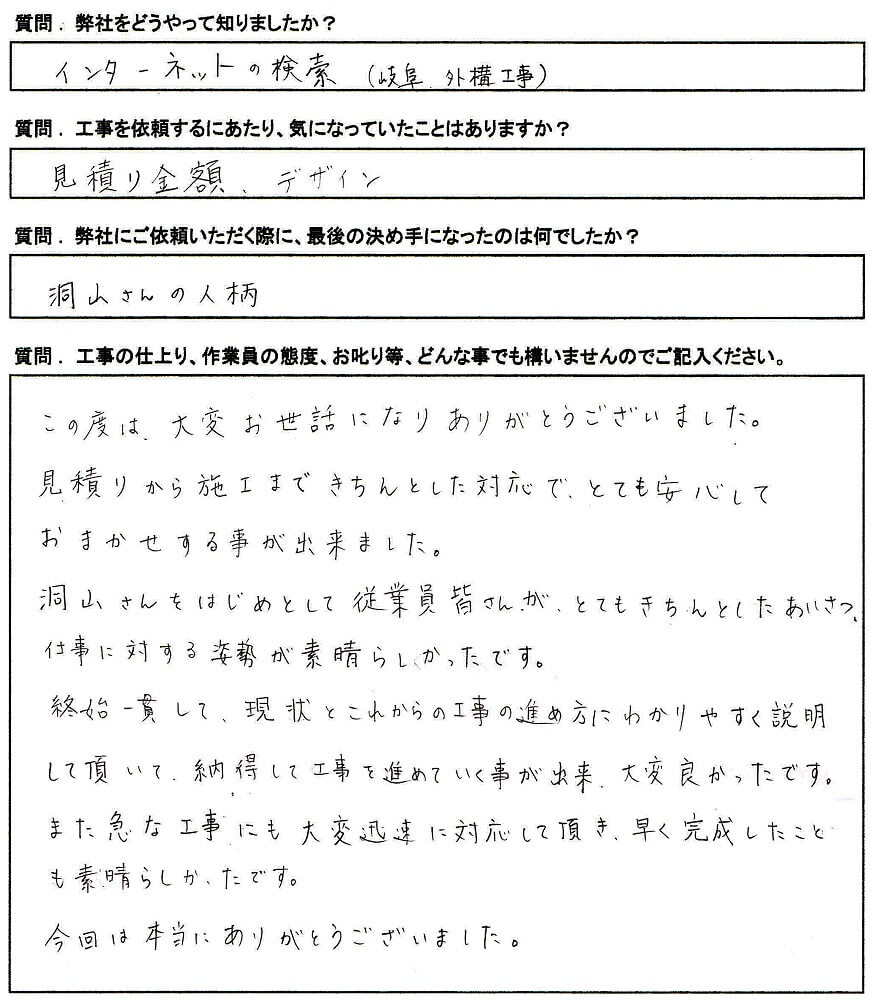 質問．弊社をどうやって知りましたか？
インターネットの検索 (岐阜、外構工事)
質問．工事を依頼するにあたり、気になっていたことはありますか？
見積り金額、デザイン
質問．弊社にご依頼いただく際に、最後の決め手になったのは何でしたか？
洞山さんの人柄
質問．工事の仕上り、作業員の態度、お叱り等、どんな事でも構いませんのでご記入ください。
この度は、大変お世話になりありがとうございました。
見積りから施工まできちんとした対応で、とても安心して
おまかせする事が出来ました。
洞山さんをはじめとして従業員皆さんが、とてもきちんとしたあいさつ、
仕事に対する姿勢が素晴らしかったです。
終始一貫して、現状とこれからの工事の進め方にわかりやすく説明
して頂いて、納得して工事を進めていく事が出来、大変良かったです。
また急な工事にも大変迅速に対応して頂き、早く完成したこと
も素晴らしかったです。
今回は本当にありがとうございました。